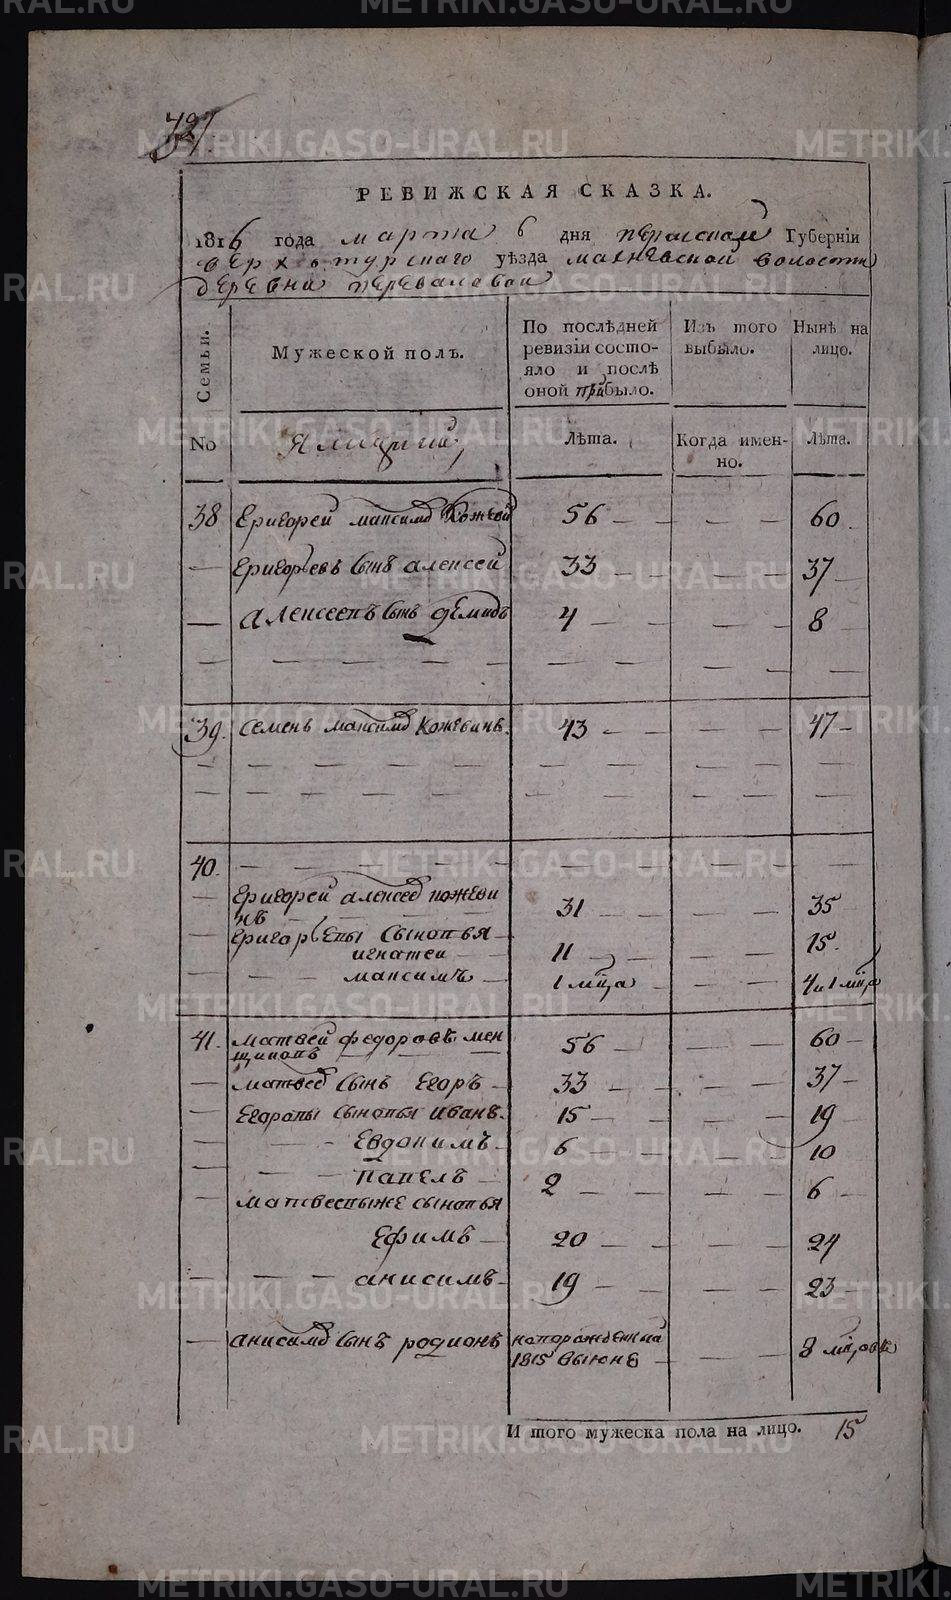 METRIKI.GASO-URAL.RU
РЕВИЖСКАЯ СКАЗКА.
1816 года марта 6 дня пермской Губерніи
верхотурскаго уѣзда махневской волости
деревни переваловой
Семьи.
Мужеской полъ.
По послѣдней ревизіи состояло и послѣ оной прибыло.
Изъ того выбыло.
Нынѣ на лицо.
No
Лѣта.
Когда именно.
Лѣта.
38 Григорей максимов Кожевин 56 — — — 60
— Григорьевъ сынъ алексей 33 — — — 37
— алексеевъ сынъ демидъ 4 — — — 8
39. семенъ максимов кожевинъ. 43 — — — 47
40.
— Григорей алексеев кожеви
нъ 31 — — 35
— Григорьевы сыновья
игнатеи 11 — — 15
максимъ 1 мца — — 4 и 1 мца
41. матвей федоровъ мен
щиковъ 56 — — 60
— матвеев сынъ егоръ 33 — — 37
— Егоровы сыновья иванъ. 15 — — 19
— Евдокимъ 6 — — 10
— павелъ 2 — — 6
— матвеевыже сыновья
Ефимъ 20 — — 24
— анисимъ 19 — — 23
— анисимов сынъ родионъ новорожденный
1815 выюне — — 8 мцовъ
И того мужеска пола на лицо. 15